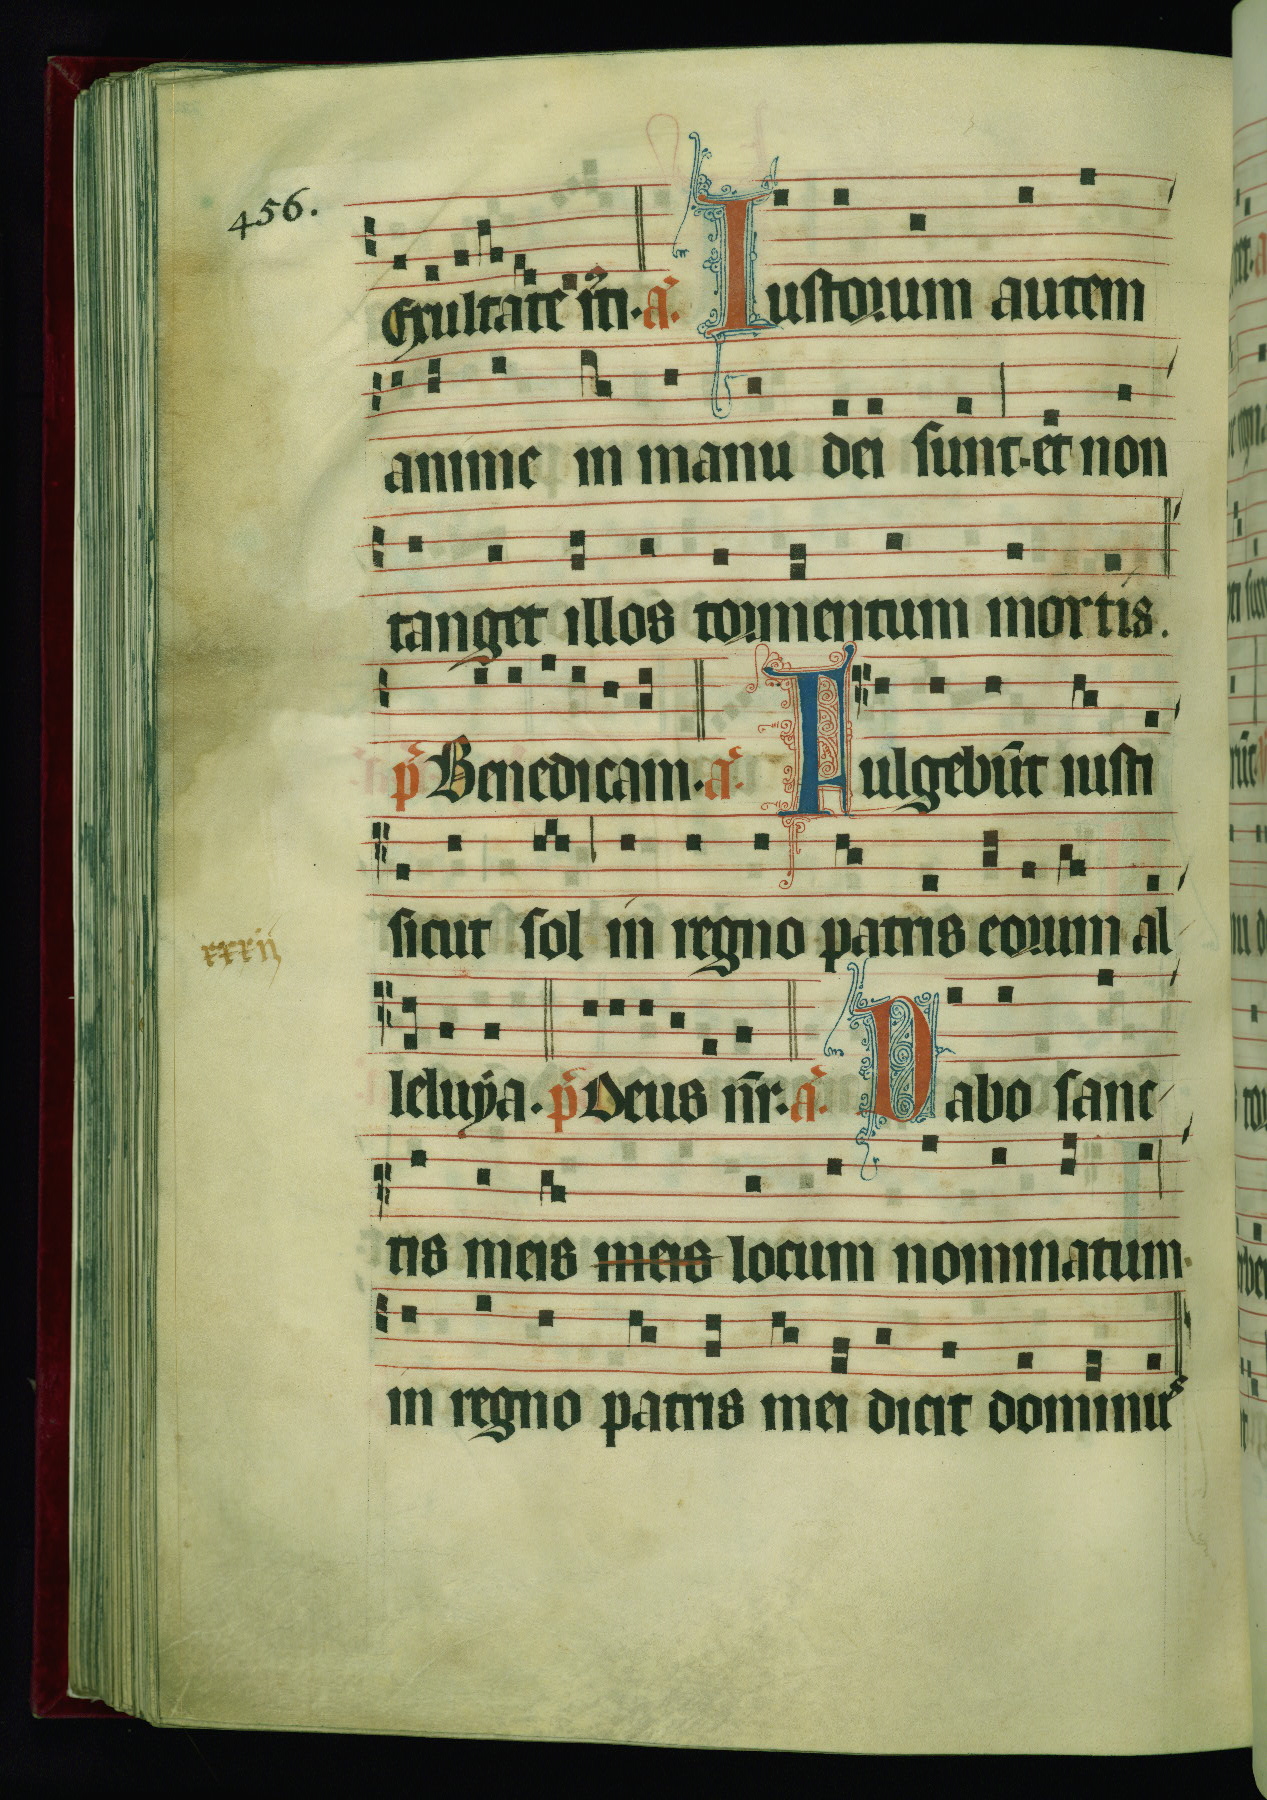 456.
Exultate iti. a. Iustorum autem
anime in manu dei sunt. et non
tanget illos tormentum mortis.
p Benedicam. a. Fulgebūt iusti
sicut sol in regno patris eorum al
xxxij
leluya. p Deus nr̄. a. Dabo sanc
tis meis meis locum nominatum
in regno patris mei dicit dominus